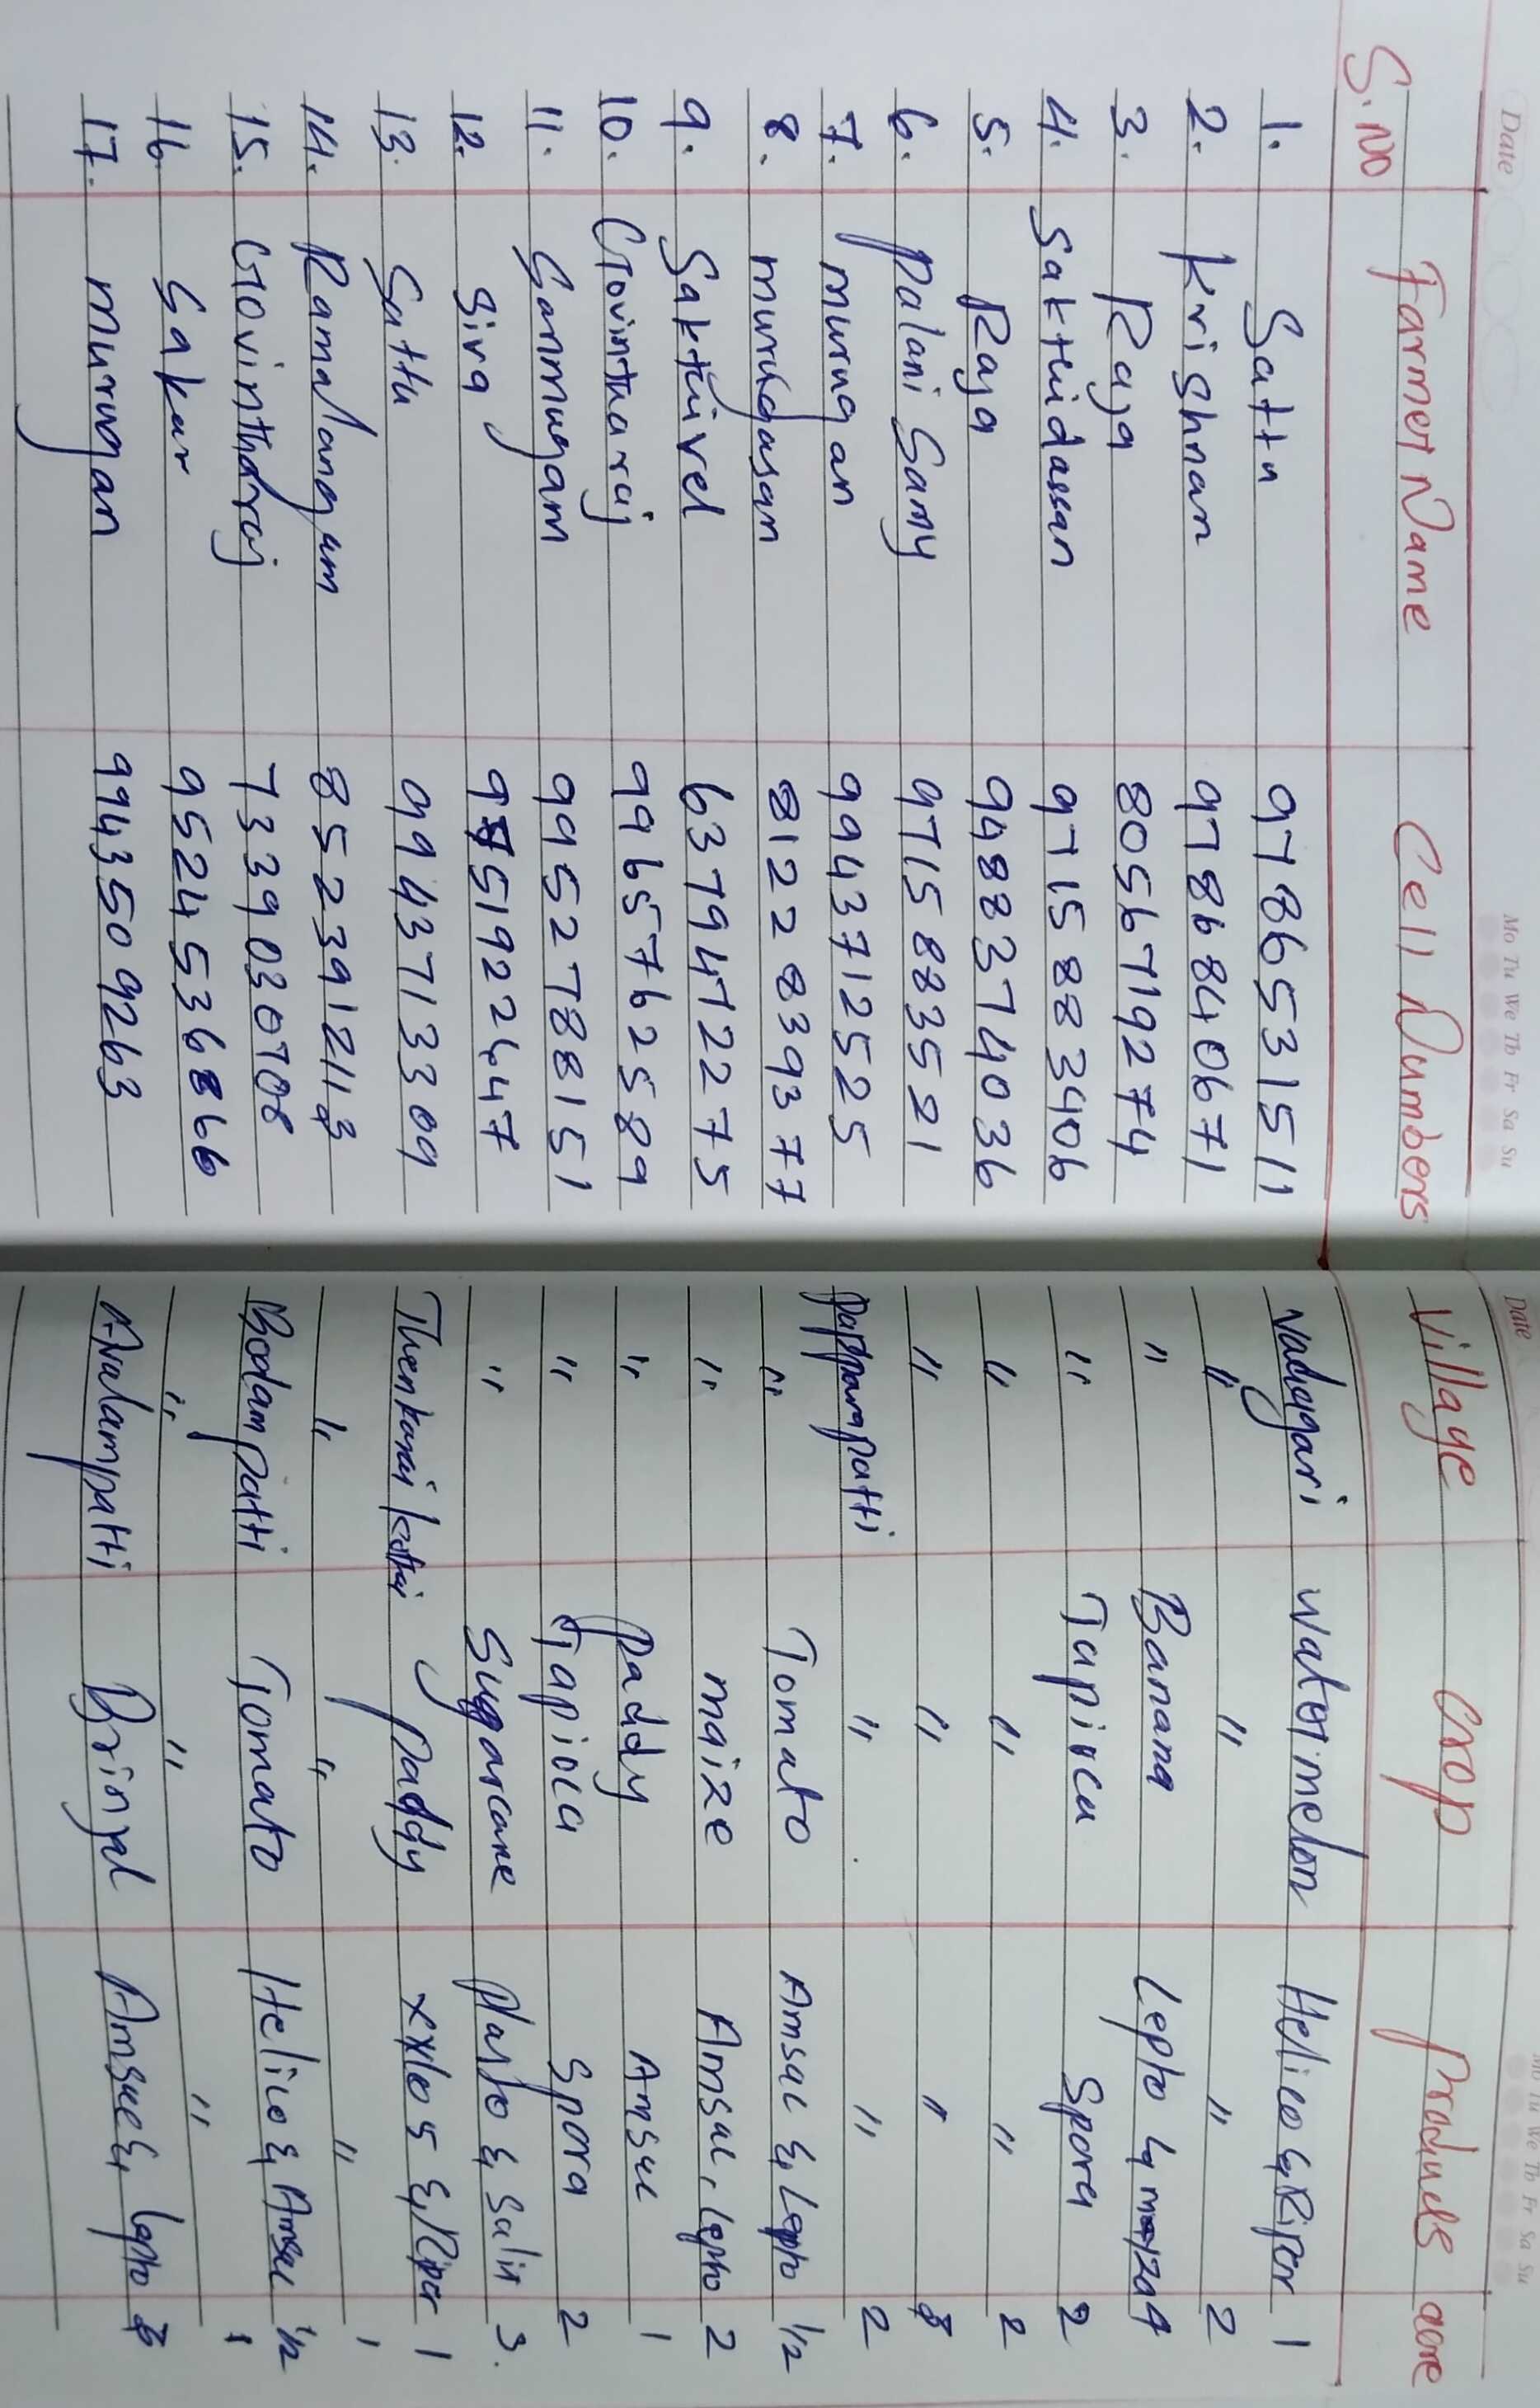 Date Mo Tu We Th Fr Sa Su Date Mo Tu We Th Fr Sa Su
S.No Farmer Name Cell Numbers Village Crop Products acre
1. Sattu 9786531511 Nadugari Watermelon Helico & Riper 1
2. Krishnan 9786840671 " " " 2
3. Raja 8056719274 " Banana Lepto
4. Sakthidassan 9715883406 " Tapioca Spora 2
5. Raja 9488374036 " " " 2
6. Palani Samy 9715883521 " " "
7. Murugan 9943712525 Papparapatti " " 2
8. murugasan 8122839377 " Tomato Amsac & Lepto 1/2
9. Sakthivel 6379472275 " maize Amsac, Lepto 2
10. Govintharaj 9965762589 " Paddy Amsac 1
11. Sanmugam 9952788151 " Tapioca Spora 2
12. Siva 9751922447 " Sugarcane Plasto & Salix 3.
13. Sattu 9943713309 Thenkarai kottai Paddy & Riper 1
14. Ramalangam " " " 1
15. Govintharaj 7339030708 Bodampatti Tomato Helico & Amsac 1/2
16. Sakar 9524536866 " " " 1
17. Murugan 9943509263 Avalampatti Brinjal Amsac & Lepto